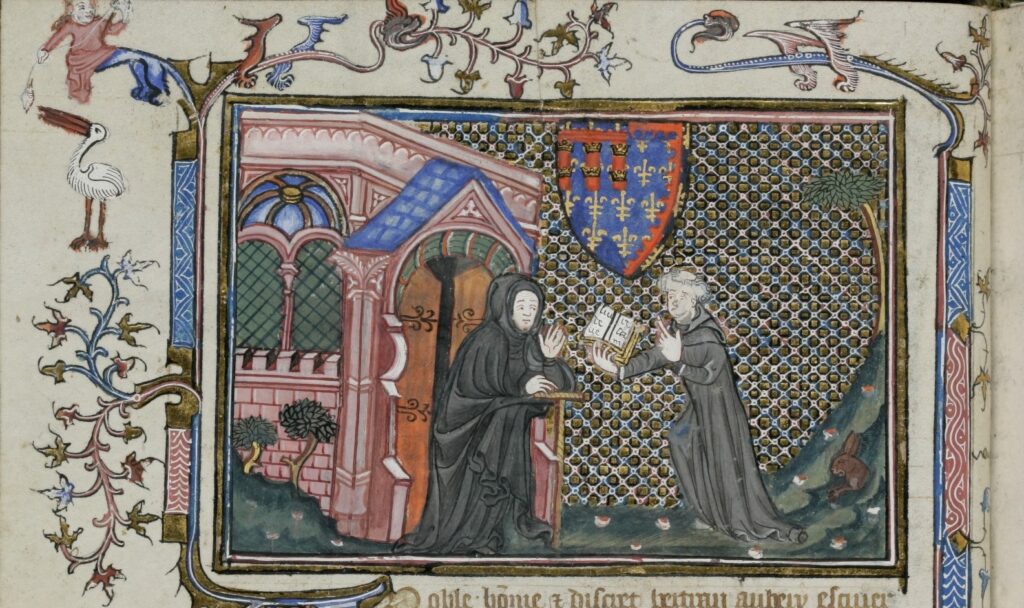 Noble hõme ⁊ discret bertran aubery escuier